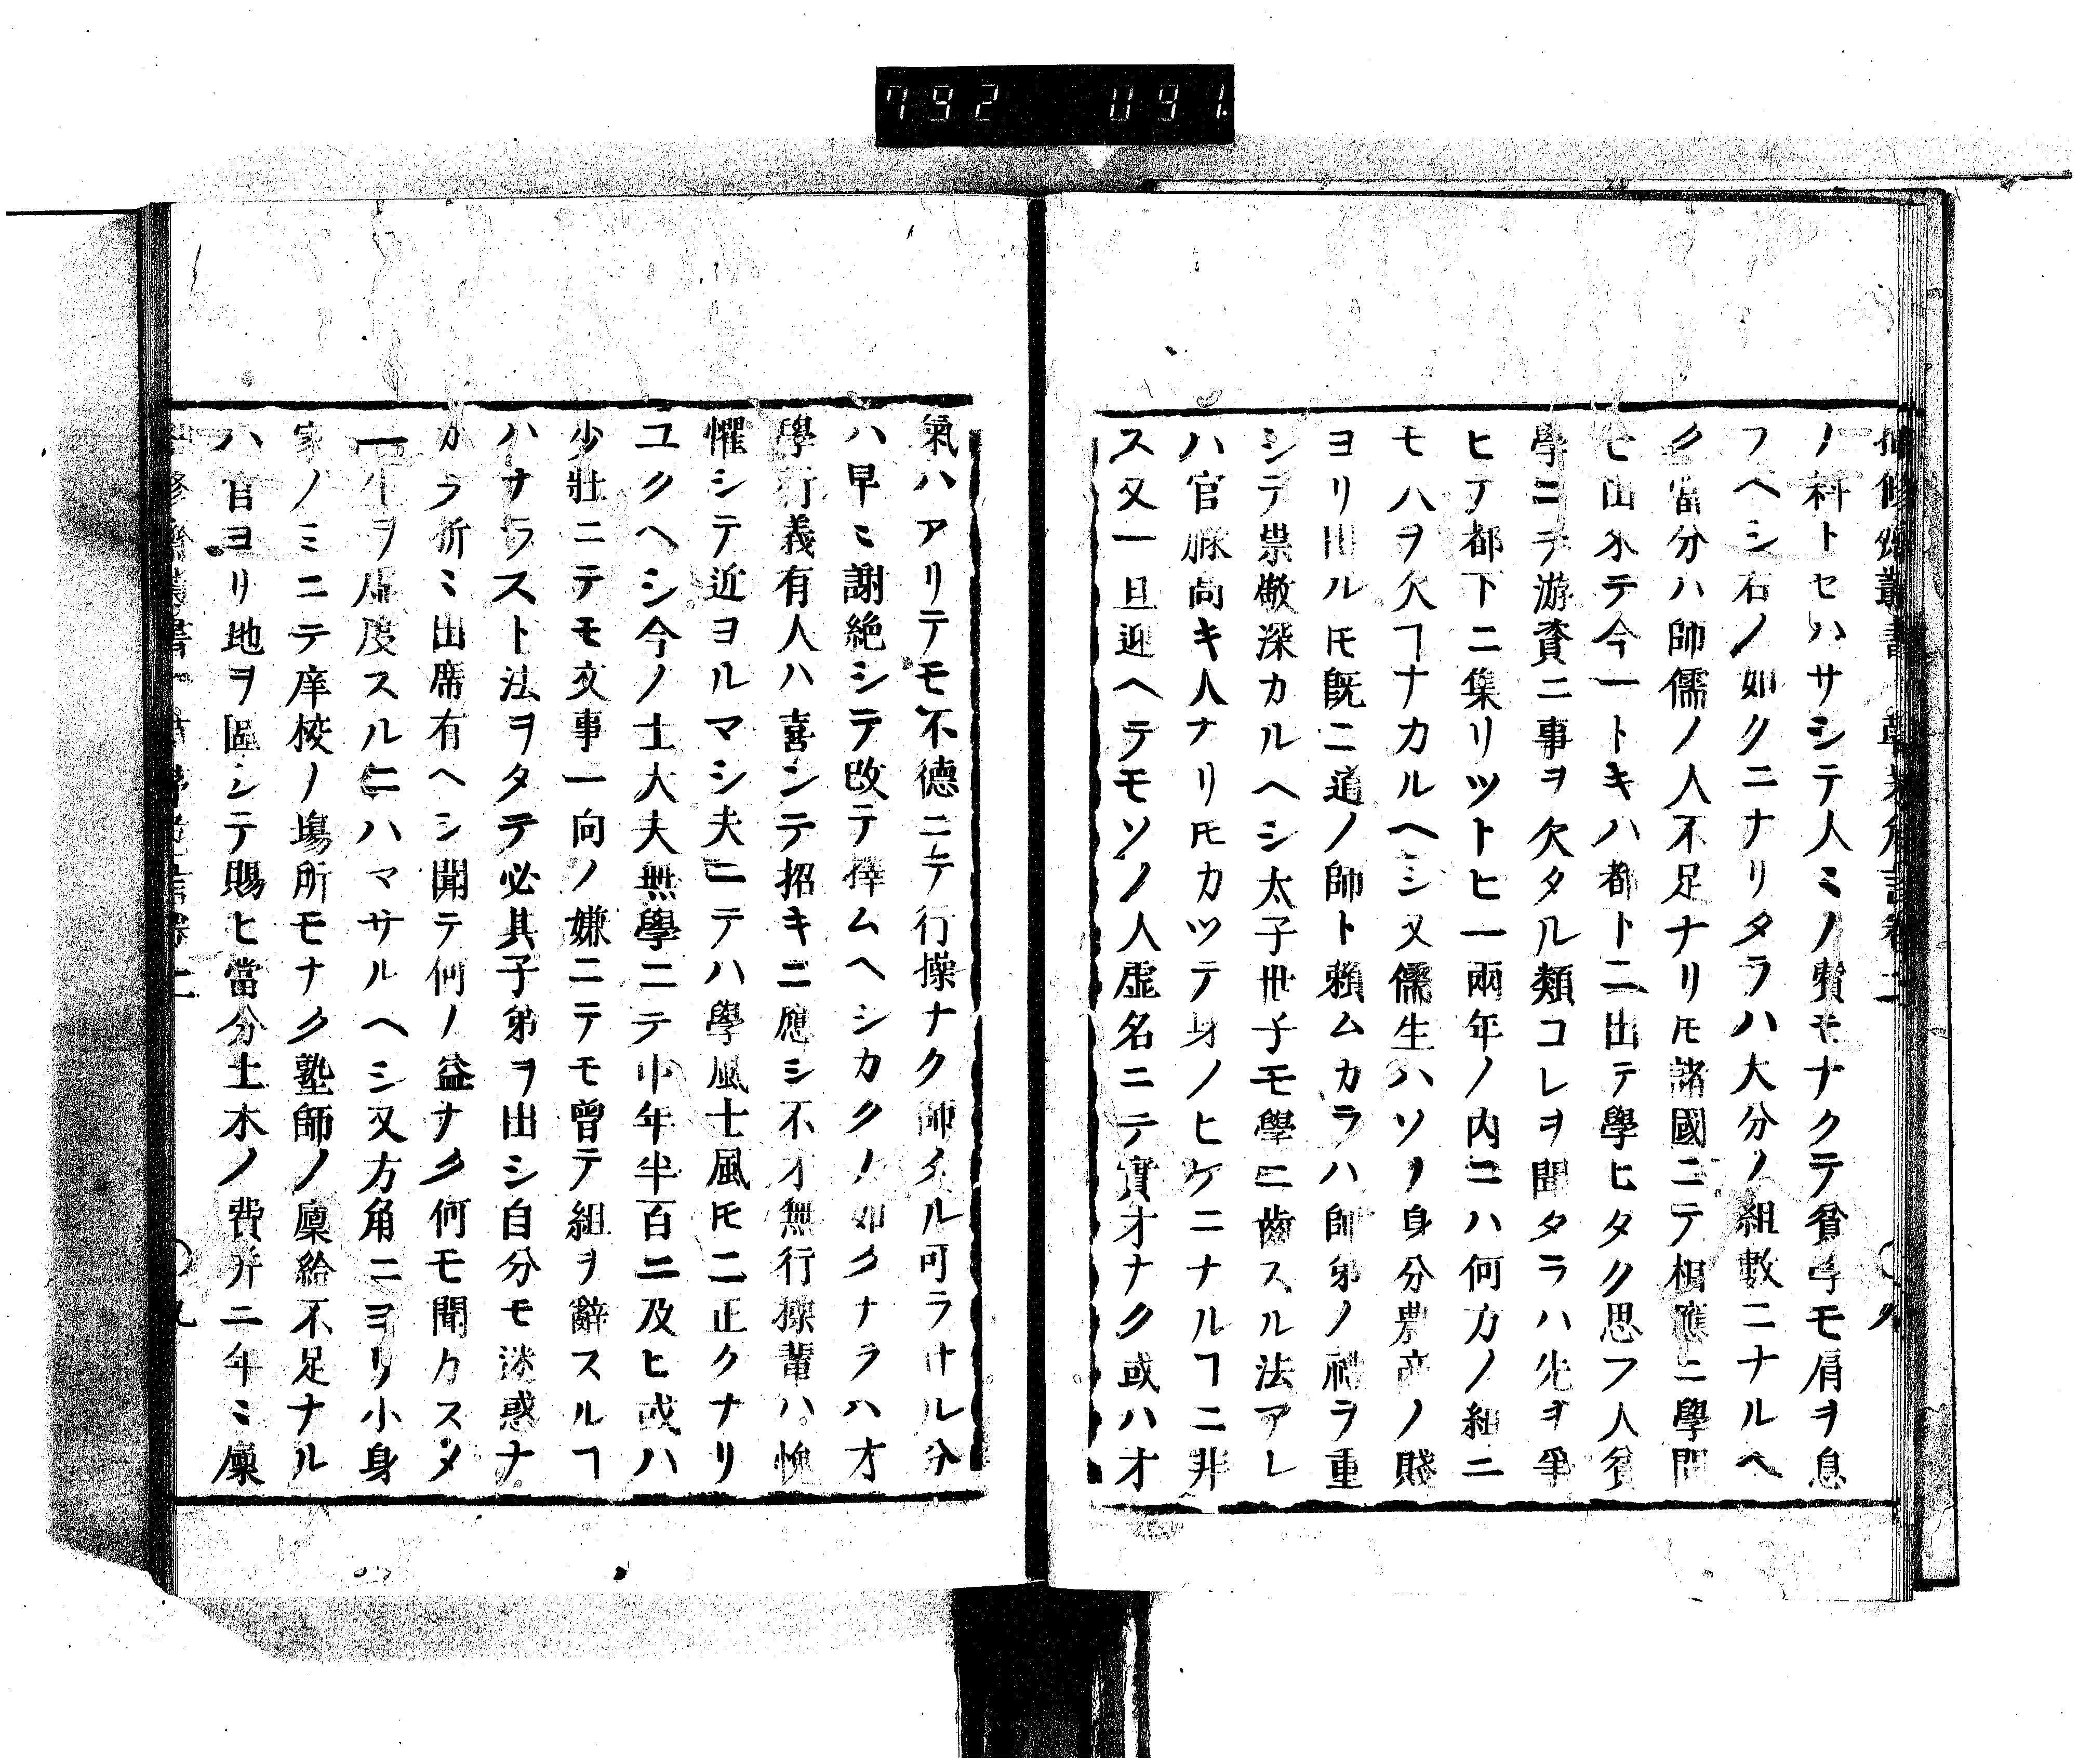 792 091
ノ科トセハサシテ人ミノ贅モナクテ貧学モ肩ヲ息
フヘシ右ノ如クニナリタラハ大分ノ組數ニナルヘ
ク當分ハ師儒ノ人不足ナリ𪜈諸國ニテ相應ニ學問
モ出來テ今一トキハ都ト二出テ學ヒタク思フ人貧
學ニテ游資ニ事ヲ欠タル類コレヲ聞タラハ先ヲ爭
ヒテ都下ニ集リツトヒ一兩年ノ内ニハ何方ノ組ニ
モハヲ欠ヿナカルヘシ又儒生ハソノ身分農商ノ賤
ヨリ出ル𪜈既ニ道ノ師ト賴ムカラハ師弟ノ禮ヲ重
シテ崇敬深カルヘシ太子世子モ學ニ齒スル法アレ
ハ官脉尚キ人ナリ𪜈カツテ身ノヒケニナルヿニ非
ス又一旦迎ヘテモソノ人虛名ニテ實才ナク或ハ才
氣ハアリテモ不德ニテ行操ナク師タル可ラサル分
ハ早ミ謝絶シテ改テ擇ムヘシカクノ如クナラハ才
學行義有人ハ喜ンテ招キニ應シ不才無行操輩ハ愧
懼シテ近ヨルマシ夫ニテハ學風士風𪜈ニ正クナリ
ユクヘシ今ノ士大夫無學ニテ中年半百ニ及ヒ或ハ
少壯ニテモ文事一向ノ嫌ニテモ曾テ組ヲ辭スルヿ
ハナラスト法ヲタテ必其子弟ヲ出シ自分モ迷惑ナ
カラ折ミ出席有ヘシ聞テ何ノ益ナク何モ聞カスメ
一生ヲ虛度スルニハマサルヘシ又方角ニヨリ小身
家ノミニテ庠校ノ塲所モナク塾師ノ廩給不足ナル
ハ官ヨリ地ヲ區シテ賜ヒ當分土木ノ費并ニ年ミ廩